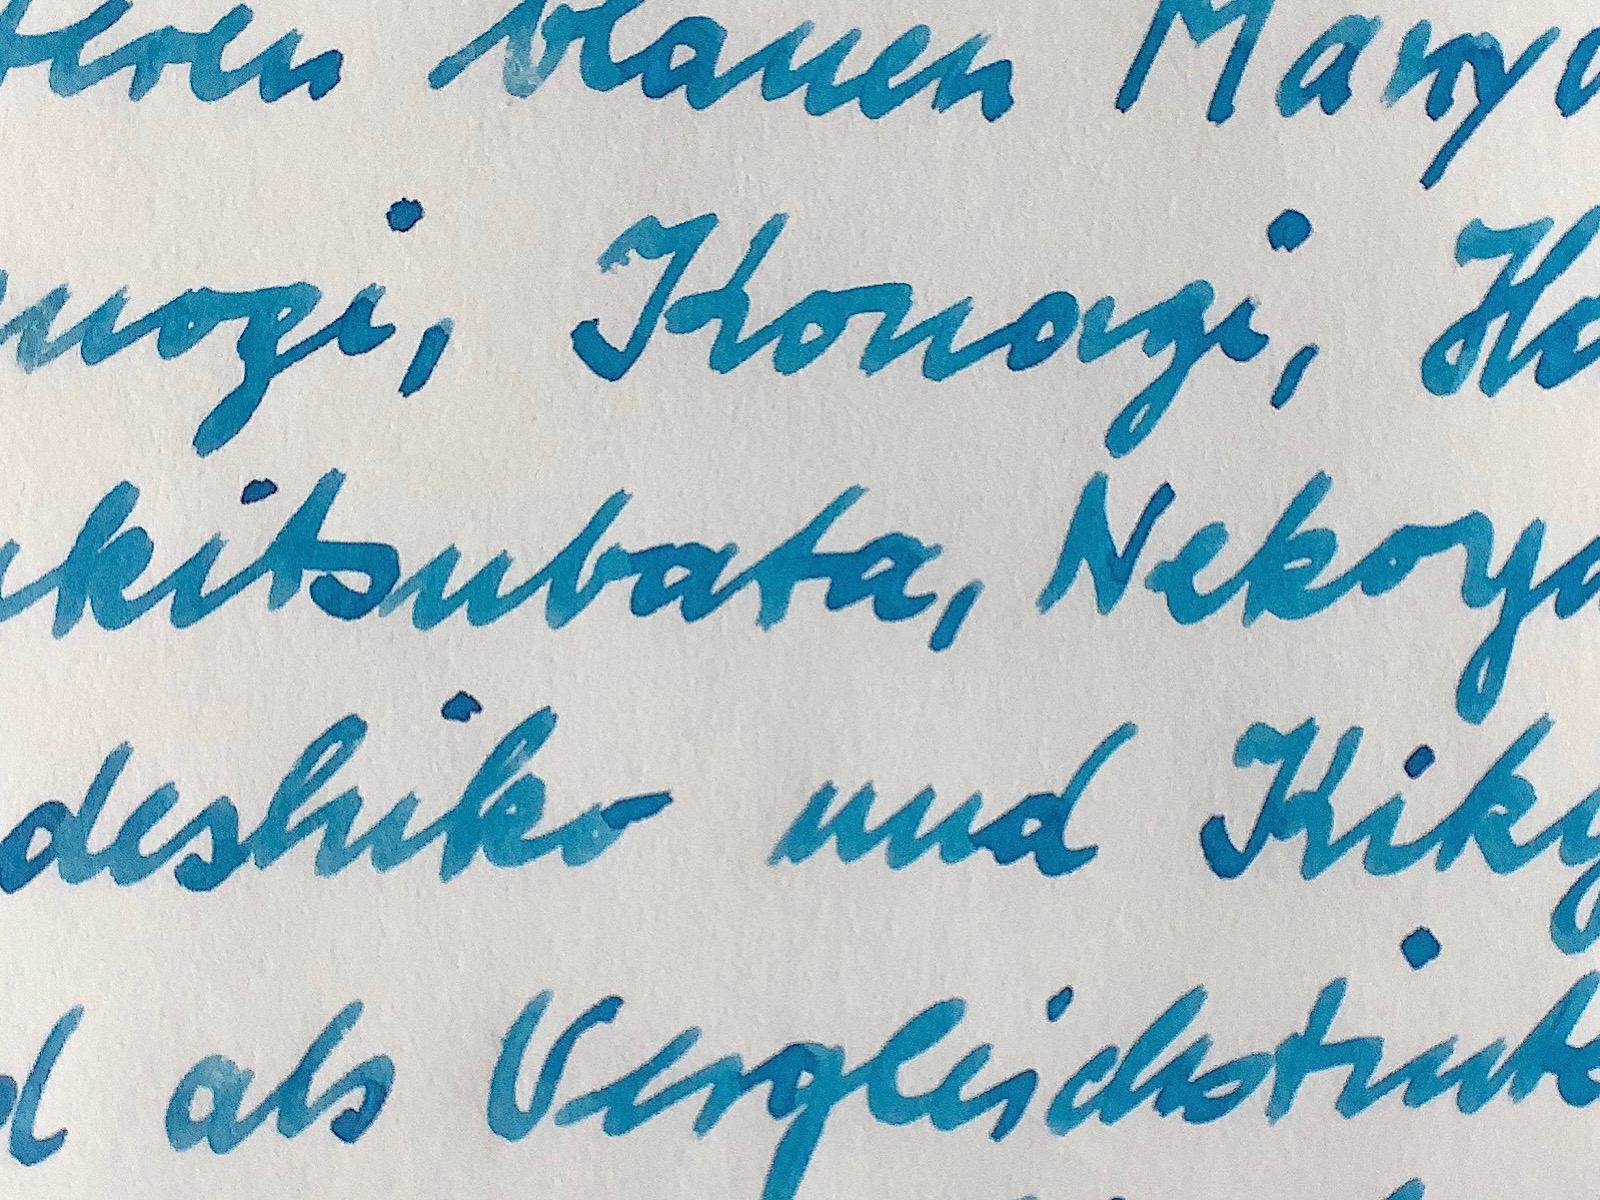 teren blauen Manyo
nogi, Konagi, Ha
akitsubata, Nekoya
deshiko und Kiky
d als Vergleichstinte